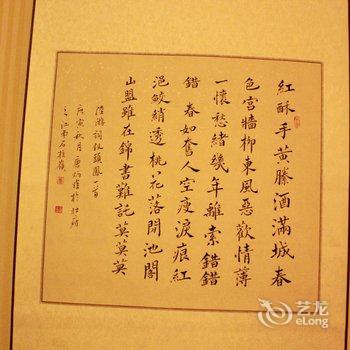 紅酥手黃縢酒滿城春
色宮牆柳東風惡歡情薄
一懷愁緒幾年離索錯錯
錯春如舊人空瘦淚痕紅
浥鮫綃透桃花落閒池閣
山盟雖在錦書難託莫莫莫
陸游詞釵頭鳳一首
庚寅秋月
艺龙
eLong